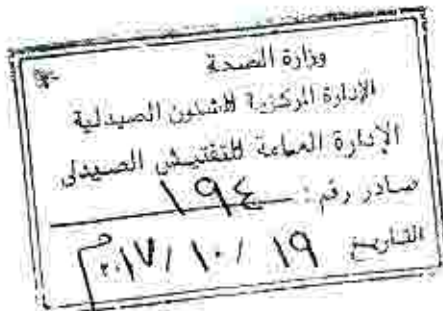 وزارة الصحة
الإدارة المركزية للشئون الصيدلية
الإدارة العامة للتفتيش الصيدلى
صادر رقم : ١٩٤
التاريخ ١٩ / ١٠ / ٢٠١٧ م